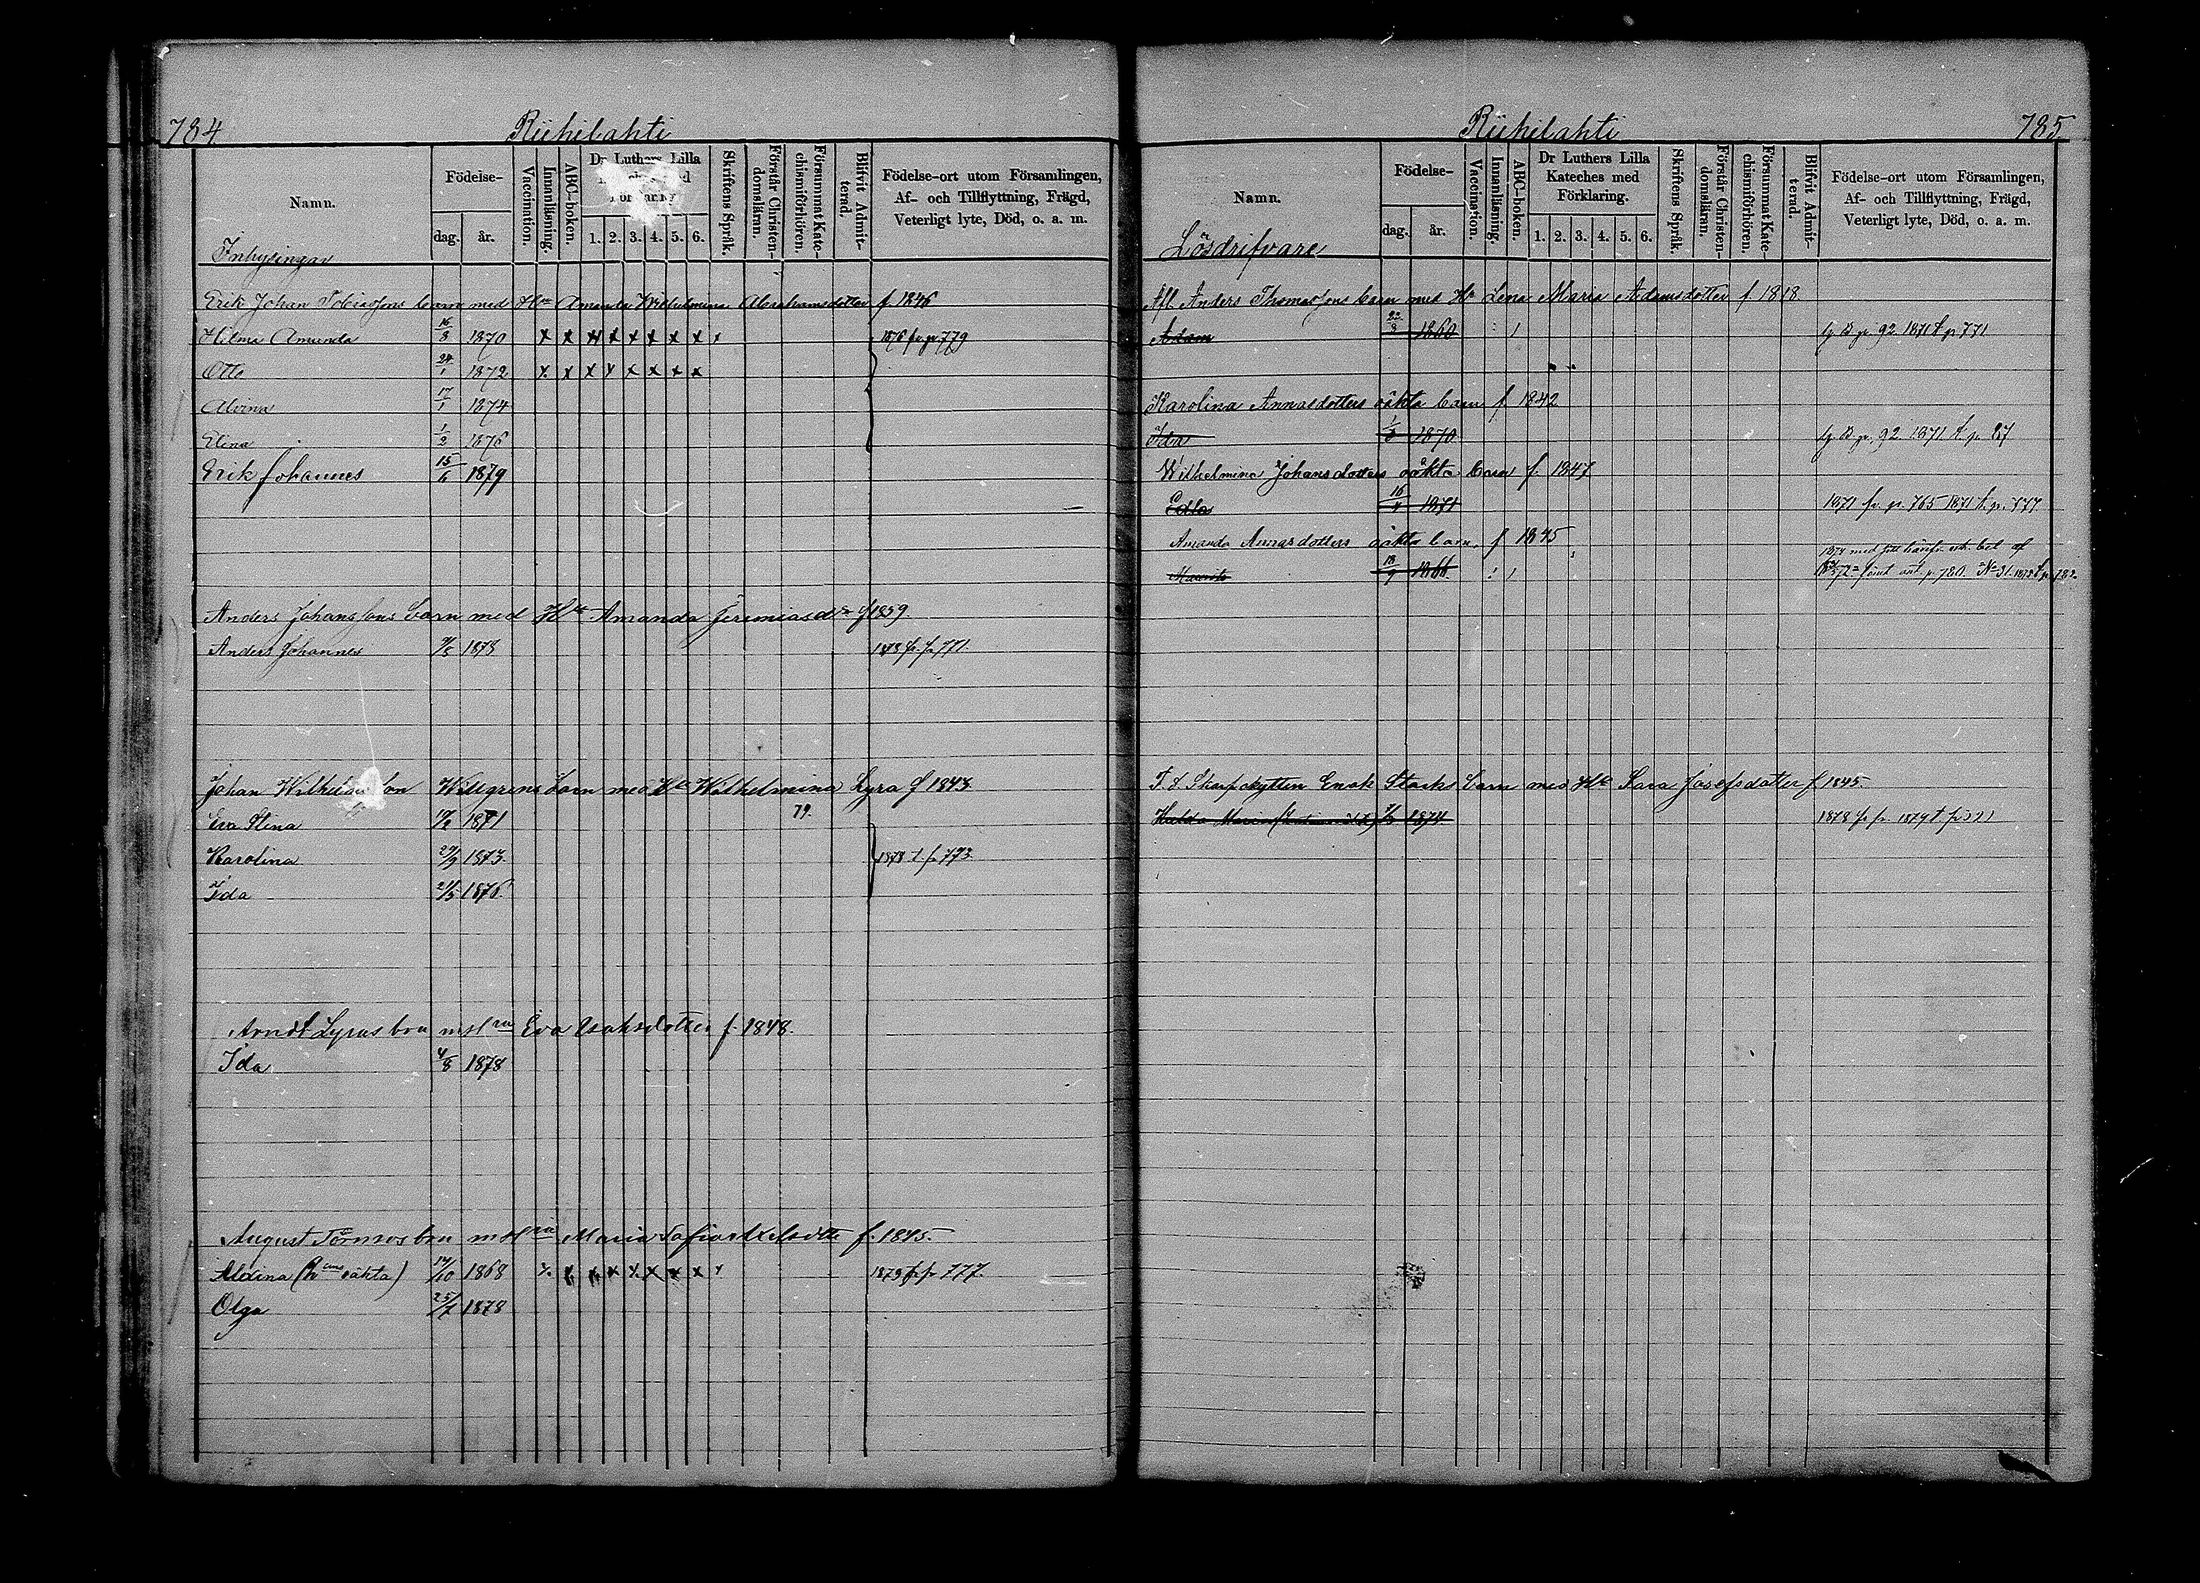 784 Riihilahti
Namn. Födelse- dag. år. Vaccination. Innanläsning. ABC-boken. Dr Luthers Lilla 1. 2. 3. 4. 5. 6. Skriftens Språk. Förstår Christendomsläran. Försummat Katechismiförhören. Blifvit Admitterad. Födelse-ort utom Församlingen, Af- och Tillflyttning, Frägd, Veterligt lyte, Död, o. a. m.
Inhysingar
Erik Johan Tobiassons barn med H:u Amanda Wilhelmina Abrahamsdotter f 1846
Hilma Amanda 16/8 1870 x x x x x x x x 1876 fr. p 779
Otto 24/1 1872 x x x x x x x x
Alvina 17/1 1874
Elina 1/2 1876
Erik Johannes 15/ 1879
Anders Johanssons barn med H:u Amanda Jeremiasd:r f 1859
Anders Johannes 1878 1878 fr. p 771.
Johan Wilhelmsson Willgrens barn med H:u Wilhelmina Lyra f 1843
Eva Stina 1871 79.
Karolina 1873 1878 t. p 773
Ida 1876
Arndt Lyras brn m H:ru Eva Isaksdotter f. 1848.
Ida 4/8 1878
August Törnros brn m H:ru Maria Sofia Axelsdotter f. 1845.
Aldina (hans oäkta) 14/10 1868 x x x x x x x x 1879 fr. p 777.
Olga 25/7 1878
Riihilahti 785
Namn. Födelse- dag. år. Vaccination. Innanläsning. ABC-boken. Dr Luthers Lilla Kateches med Förklaring. 1. 2. 3. 4. 5. 6. Skriftens Språk. Förstår Christendomsläran. Försummat Katechismiförhören. Blifvit Admitterad. Födelse-ort utom Församlingen, Af- och Tillflyttning, Frägd, Veterligt lyte, Död, o. a. m.
Lösdrifvare
Afl. Anders Thomassons barn med H:u Lena Maria Adamsdotter f 1818
Adam 22/8 1860 lg B p. 92 1871 t. p. 771
Karolina Annasdotters oäkta barn f. 1842
Ida 1870 lg B p. 92 1871 t. p. 87
Wilhelmina Johansdotters oäkta barn f. 1847
Edla 16/4 1871 1871 fr. p. 765 1871 t. p. 777
Amanda Annasdotters oäkta barn f 1845
Maurits 18/9 1866 p. 780. N:o 31. 1872 t. p. 782
F. d. Skarpskytten Enok Starks barn med H:u Sara Josefsdotter f. 1845.
Hulda Maria 1874 1878 fr. p. 1879 t.